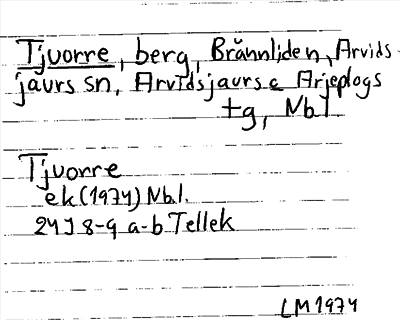 Tjuorre, berg, Brännliden, Arvids-
jaurs sn, Arvidsjaurs o Arjeplogs
tg, Nbl.
Tjuorre
ek (1974) Nbl.
24J 8-9 a-b Tellek
LM 1974